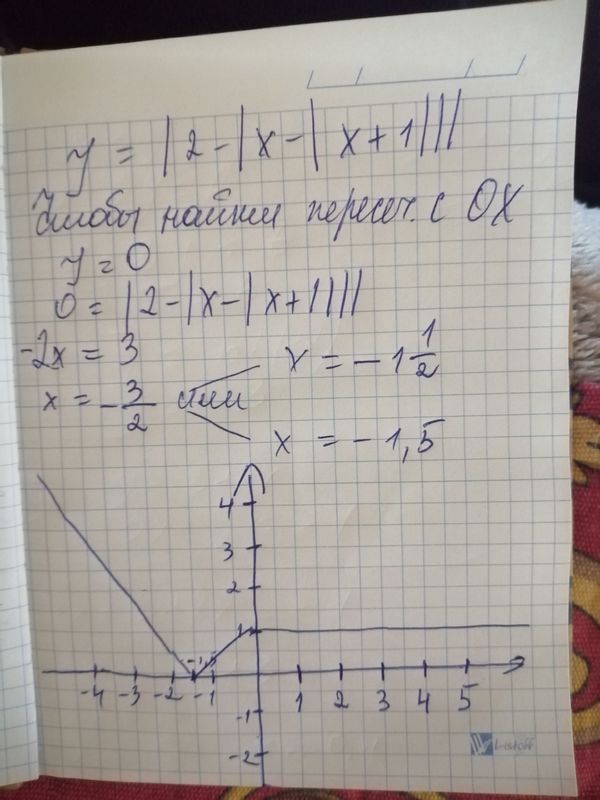 y = |2-|x-|x+1||||
Чтобы найти пересеч. с OX
y = 0
0 = |2-|x-|x+1||||
-2x = 3
x = -3/2 или x = -1 1/2
x = -1,5
4
3
2
1
-1,5
-4 -3 -2 -1 1 2 3 4 5
-1
-2
Listoff